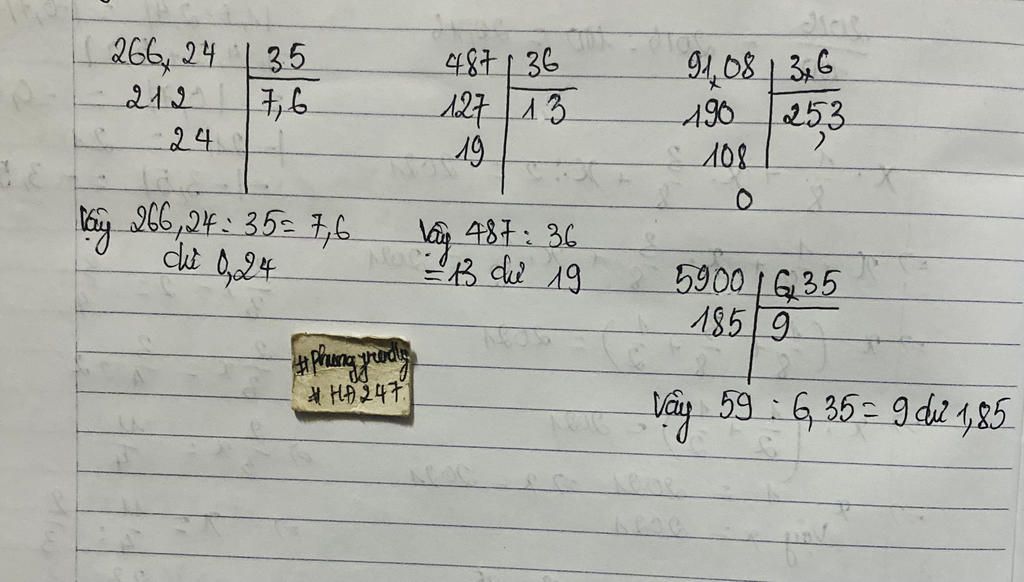 266,24 | 35
212 | 7,6
24
Vậy 266,24 : 35 = 7,6
dư 0,24
487 | 36
127 | 13
19
Vậy 487 : 36
= 13 dư 19
91,08 | 3,6
190 | 25,3
108
0
5900 | 6,35
185 | 9
Vậy 59 : 6,35 = 9 dư 1,85
# HĐ247